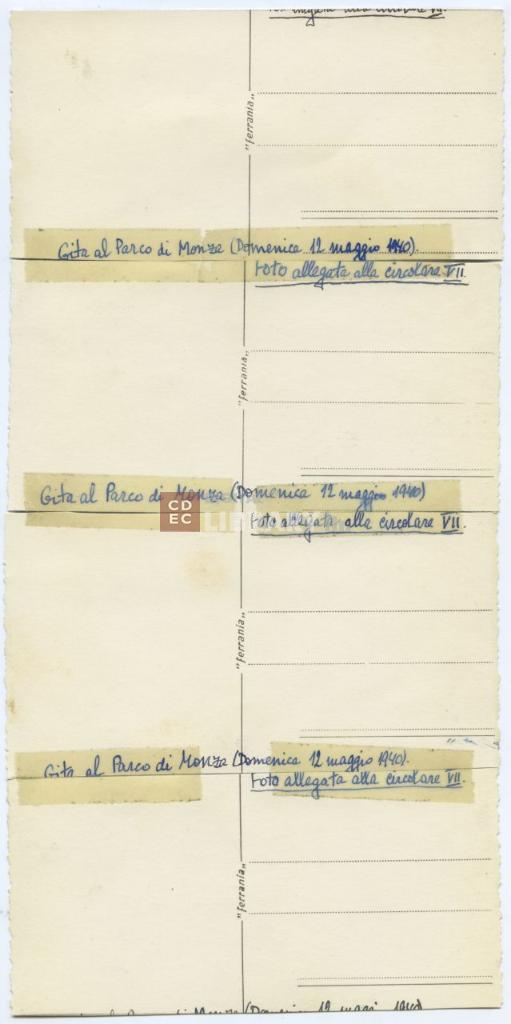 Foto allegata alla circolare VII.
"ferrania"
Gita al Parco di Monza (Domenica 12 maggio 1940).
Foto allegata alla circolare VII.
"ferrania"
Gita al Parco di Monza (Domenica 12 maggio 1940)
CD
EC LIBRARY
Foto allegata alla circolare VII.
"ferrania"
Gita al Parco di Monza (Domenica 12 maggio 1940).
Foto allegata alla circolare VII.
"ferrania"
al Parco di Monza (Domenica 12 maggio 1940)